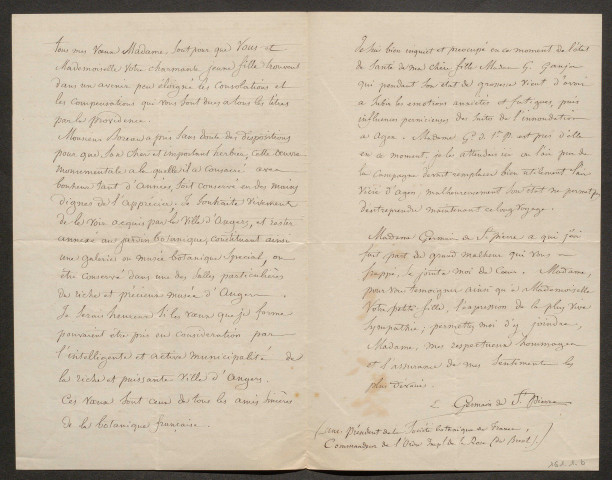 tous mes vœux Madame, sont pour que Vous et
Mademoiselle votre charmante jeune fille trouviez
dans un avenir peu éloigné les Consolations et
les Compensations qui vous sont dues à tous les titres
par la Providence.
Monsieur Boreau a pris sans doute des dispositions
pour que son cher et important herbier, cette œuvre
monumentale à la quelle il a consacré avec
bonheur tant d'Années, soit conservé en des mains
dignes de l'apprécier. Je souhaite vivement
de le voir acquis par la Ville d'Angers, et rester
annexé au jardin botanique, constituant ainsi
une galerie ou musée botanique spécial, ou
être conservé dans une des salles particulières
du riche et précieux musée d'Angers.
Je serais heureux si les vœux que je forme
pouvaient être pris en considération par
l'intelligente et active municipalité de
la riche et puissante Ville d'Angers.
Ces vœux sont ceux de tous les amis sincères
de la botanique française.
Je suis bien inquiet et préoccupé en ce moment de l'état
de santé de ma chère fille Madame G.
qui pendant son état de grossesse vient d'avoir
à subir les émotions anxiétés et fatigues, puis
influences pernicieuses des suites de l'innondation
à Agen. Madame G. de St. P. est près d'elle
en ce moment, je les attendais ici où l'air pur de
la Campagne devait remplacer bien utilement l'air
vicié d'Agen; malheureusement son état ne permet pas
d'entreprendre maintenant ce long voyage.
Madame Germain de St. Pierre à qui j'ai
fait part du grand malheur qui vous a
frappée, se joint à moi de Cœur, Madame,
pour vous témoigner ainsi qu'à Mademoiselle
Votre petite fille, l'expression de la plus vive
Sympathie; permettez moi d'y joindre,
Madame, mes respectueux hommages
et l'assurance de mes Sentiments les
plus dévoués.
E. Germain de St. Pierre
(anc. Président de la Société botanique de France,
Commandeur de l'Ordre Impl. de la Rose (du Brésil).)